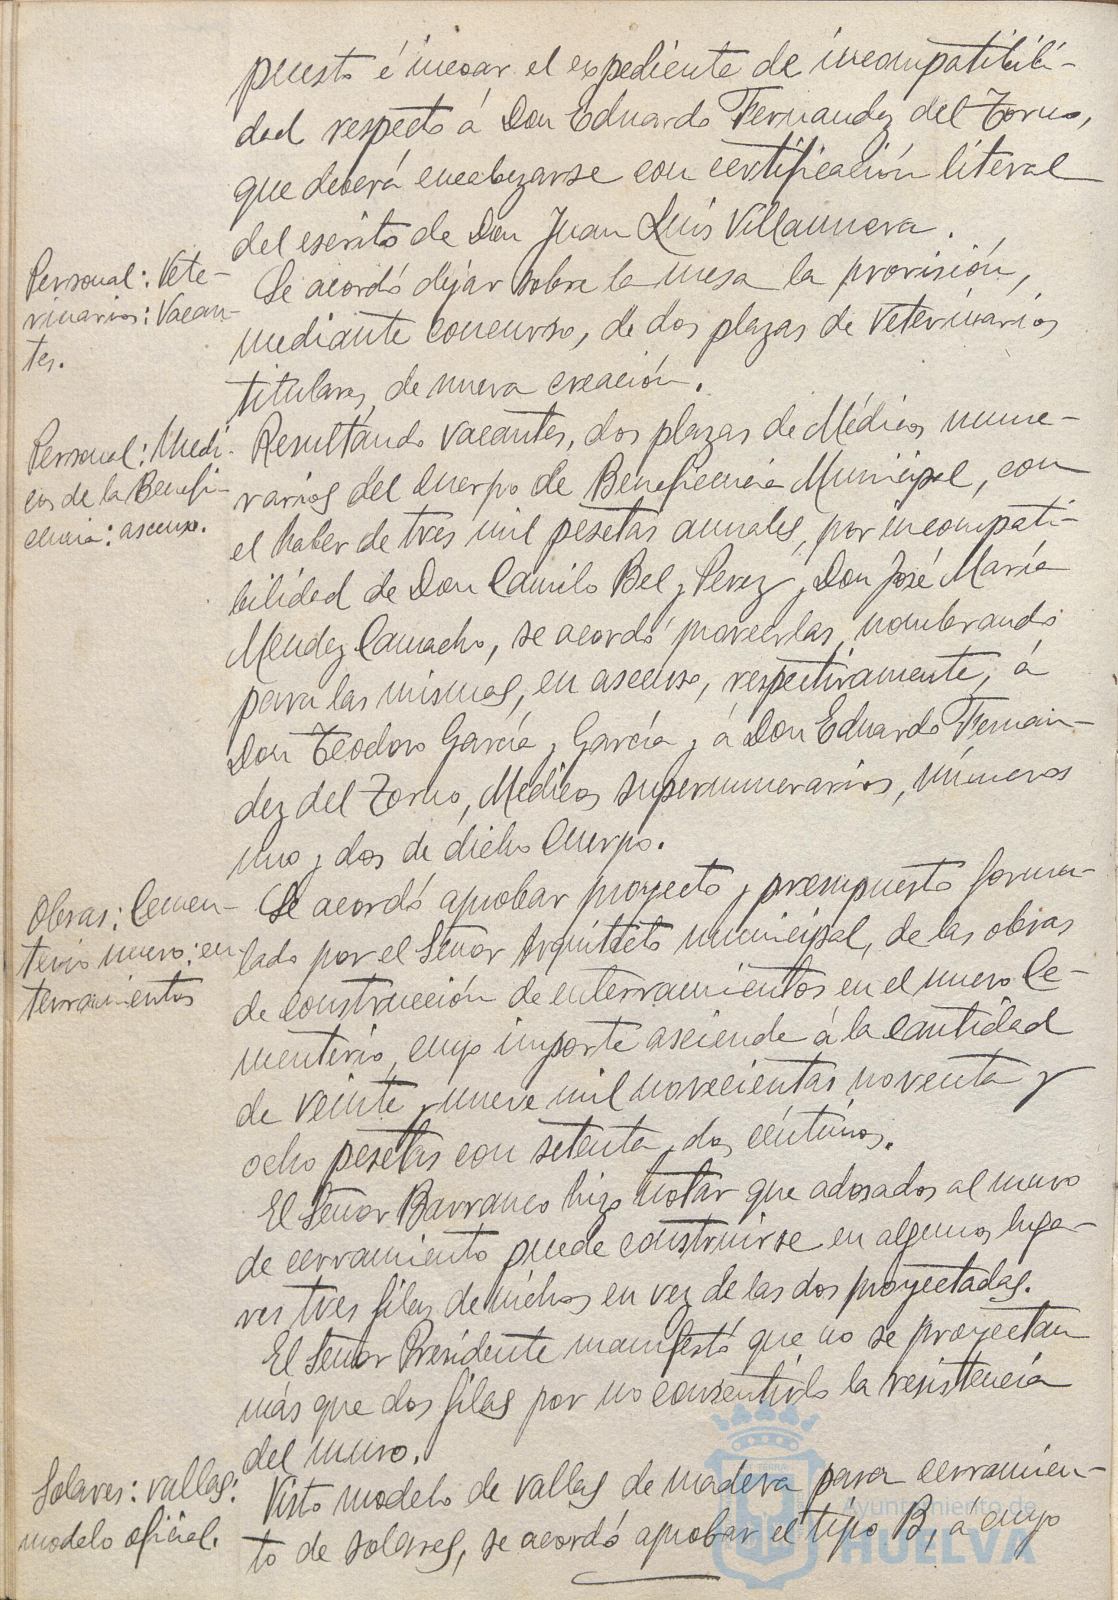 puesto é incoar el expediente de incompatibili-
dad respecto á Don Eduardo Fernandez del Torno,
que deberá encabezarse con certificación literal
del escrito de Don Juan Luís Villanueva.
Personal: Vete-
rinarios: Vacan-
tes.
Se acordó dejar sobre la mesa la provisión,
mediante concurso, de dos plazas de Veterinarios
titulares, de nueva creación.
Personal: Médi-
cos de la Benefi-
cencia: ascenso.
Resultando vacantes, dos plazas de Médicos nume-
rarios del Cuerpo de Beneficencia Municipal, con
el haber de tres mil pesetas anuales, por incompati-
bilidad de Don Camilo Bel y Perez y Don José María
Mendez Camacho, se acordó proveerlas, nombrando
para las mismas, en ascenso, respectivamente, á
Don Teodoro García y García y á Don Eduardo Fernan-
dez del Torno, Médicos supernumerarios, números
uno y dos de dicho Cuerpo.
Obras: Cemen-
terio nuevo: en-
terramientos
Se acordó aprobar proyecto y presupuesto formu-
lado por el Señor Arquitecto municipal, de las obras
de construcción de enterramientos en el nuevo Ce-
menterio, cuyo importe asciende á la cantidad
de veinte y nueve mil novecientas noventa y
ocho pesetas con setenta y dos céntimos.
El Señor Barranco hizo notar que adosados al muro
de cerramiento puede construirse en algunos luga-
res tres filas de nichos en vez de las dos proyectadas.
El Señor Presidente manifestó que no se proyectan
más que dos filas por no consentirlo la resistencia
del muro.
Solares: vallas:
modelo oficial.
Visto modelo de vallas de madera para cerramien-
to de solares, se acordó aprobar el tipo B, á cuyo
Ayuntamiento de
HUELVA